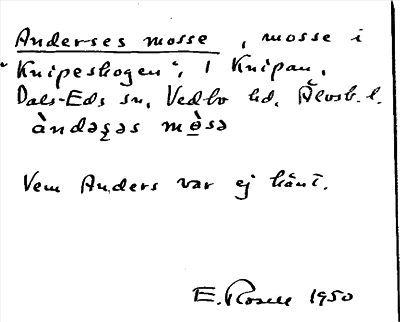 Anderses mosse, mosse i
"Knipeskogen", 1 Knipan,
Dals-Eds sn, Vedbo hd, Älvsb. l.
àndəʂəs mɵ̀sə
Vem Anders var ej känt.
E. Rosell 1950